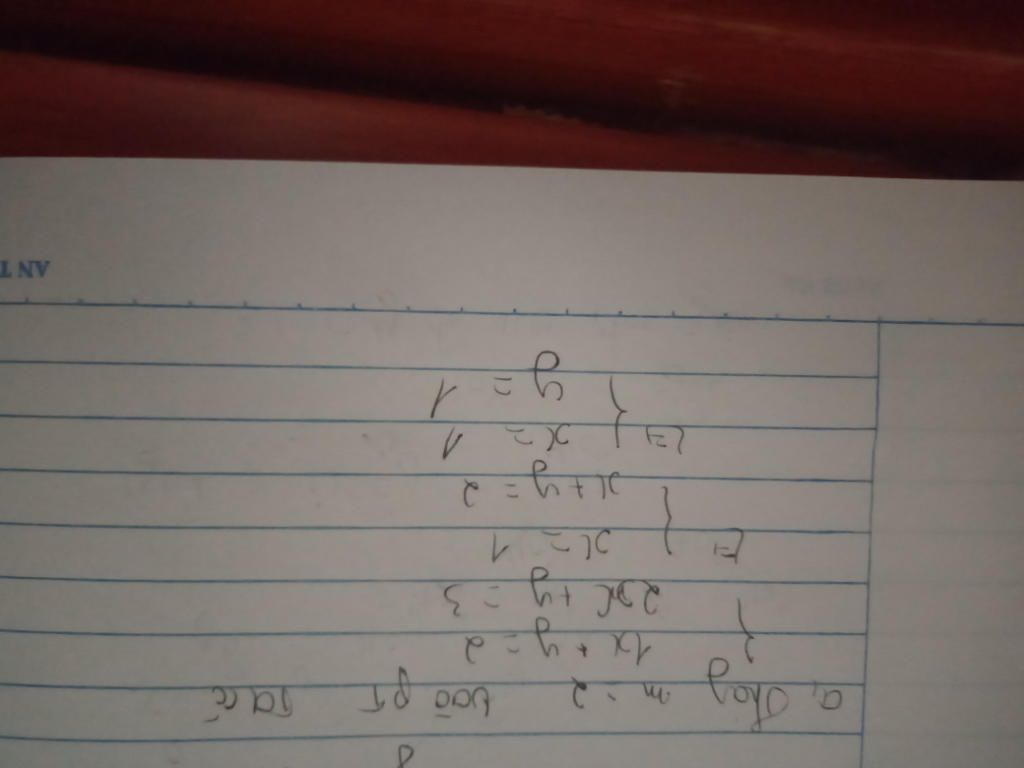 a, Thay m = 2 vào PT ta có
{ 1x + y = 2
2x + y = 3
⇔ { x = 1
x + y = 2
⇔ { x = 1
y = 1
AN T